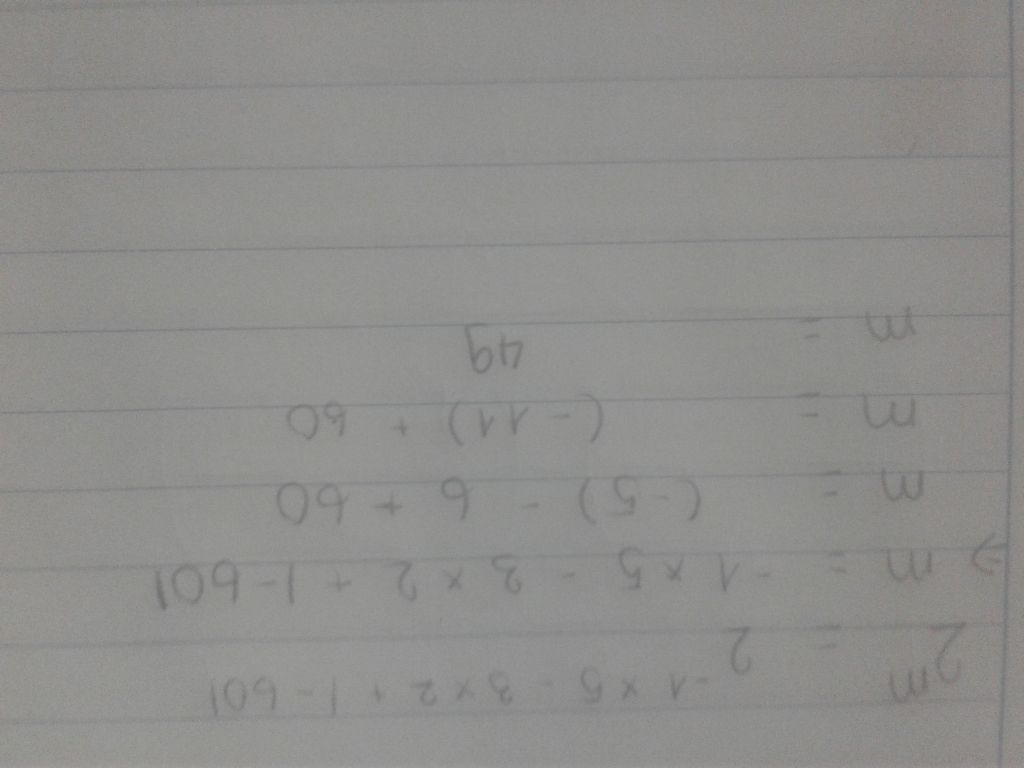 2^m = 2^-1×5 - 3×2 + |-60|
⇒ m = -1×5 - 3×2 + |-60|
m = (-5) - 6 + 60
m = (-11) + 60
m = 49